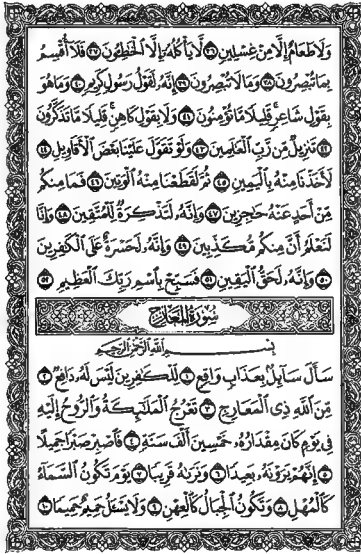 وَلَا طَعَامٌ إِلَّا مِنْ غِسْلِينٍ ٣٦ لَّا يَأْكُلُهُۥٓ إِلَّا ٱلْخَٰطِـُٔونَ ٣٧ فَلَآ أُقْسِمُ
بِمَا تُبْصِرُونَ ٣٨ وَمَا لَا تُبْصِرُونَ ٣٩ إِنَّهُۥ لَقَوْلُ رَسُولٍ كَرِيمٍ ٤٠ وَمَا هُوَ
بِقَوْلِ شَاعِرٍ ۚ قَلِيلًا مَّا تُؤْمِنُونَ ٤١ وَلَا بِقَوْلِ كَاهِنٍ ۚ قَلِيلًا مَّا تَذَكَّرُونَ
٤٢ تَنزِيلٌ مِّن رَّبِّ ٱلْعَٰلَمِينَ ٤٣ وَلَوْ تَقَوَّلَ عَلَيْنَا بَعْضَ ٱلْأَقَاوِيلِ ٤٤
لَأَخَذْنَا مِنْهُ بِٱلْيَمِينِ ٤٥ ثُمَّ لَقَطَعْنَا مِنْهُ ٱلْوَتِينَ ٤٦ فَمَا مِنكُم
مِّنْ أَحَدٍ عَنْهُ حَٰجِزِينَ ٤٧ وَإِنَّهُۥ لَتَذْكِرَةٌ لِّلْمُتَّقِينَ ٤٨ وَإِنَّا
لَنَعْلَمُ أَنَّ مِنكُم مُّكَذِّبِينَ ٤٩ وَإِنَّهُۥ لَحَسْرَةٌ عَلَى ٱلْكَٰفِرِينَ
٥٠ وَإِنَّهُۥ لَحَقُّ ٱلْيَقِينِ ٥١ فَسَبِّحْ بِٱسْمِ رَبِّكَ ٱلْعَظِيمِ ٥٢
سُورَةُ الْمَعَارِجِ
بِسْمِ ٱللَّهِ ٱلرَّحْمَٰنِ ٱلرَّحِيمِ
سَأَلَ سَآئِلٌۢ بِعَذَابٍ وَاقِعٍ ١ لِّلْكَٰفِرِينَ لَيْسَ لَهُۥ دَافِعٌ ٢
مِّنَ ٱللَّهِ ذِى ٱلْمَعَارِجِ ٣ تَعْرُجُ ٱلْمَلَٰٓئِكَةُ وَٱلرُّوحُ إِلَيْهِ
فِى يَوْمٍ كَانَ مِقْدَارُهُۥ خَمْسِينَ أَلْفَ سَنَةٍ ٤ فَٱصْبِرْ صَبْرًا جَمِيلًا
٥ إِنَّهُمْ يَرَوْنَهُۥ بَعِيدًا ٦ وَنَرَىٰهُ قَرِيبًا ٧ يَوْمَ تَكُونُ ٱلسَّمَآءُ
كَٱلْمُهْلِ ٨ وَتَكُونُ ٱلْجِبَالُ كَٱلْعِهْنِ ٩ وَلَا يَسْـَٔلُ حَمِيمٌ حَمِيمًا ١٠